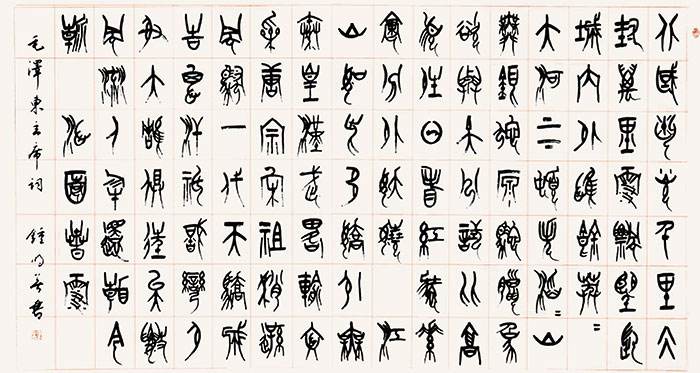 北國風光千里冰
封萬里雪飄望長
城內外惟餘莽〻
大河上下頓失滔〻山
舞銀蛇原馳蠟象
欲與天公試比高
須晴日看紅裝素
裹分外妖嬈江
山如此多嬌引無
秦皇漢武略輸文
采唐宗宋祖稍遜
風騷一代天驕成
吉思汗只識彎弓
射大雕俱往矣數
風流人物還看今
朝 沁園春雪
毛澤東主席詞 鍾明善書